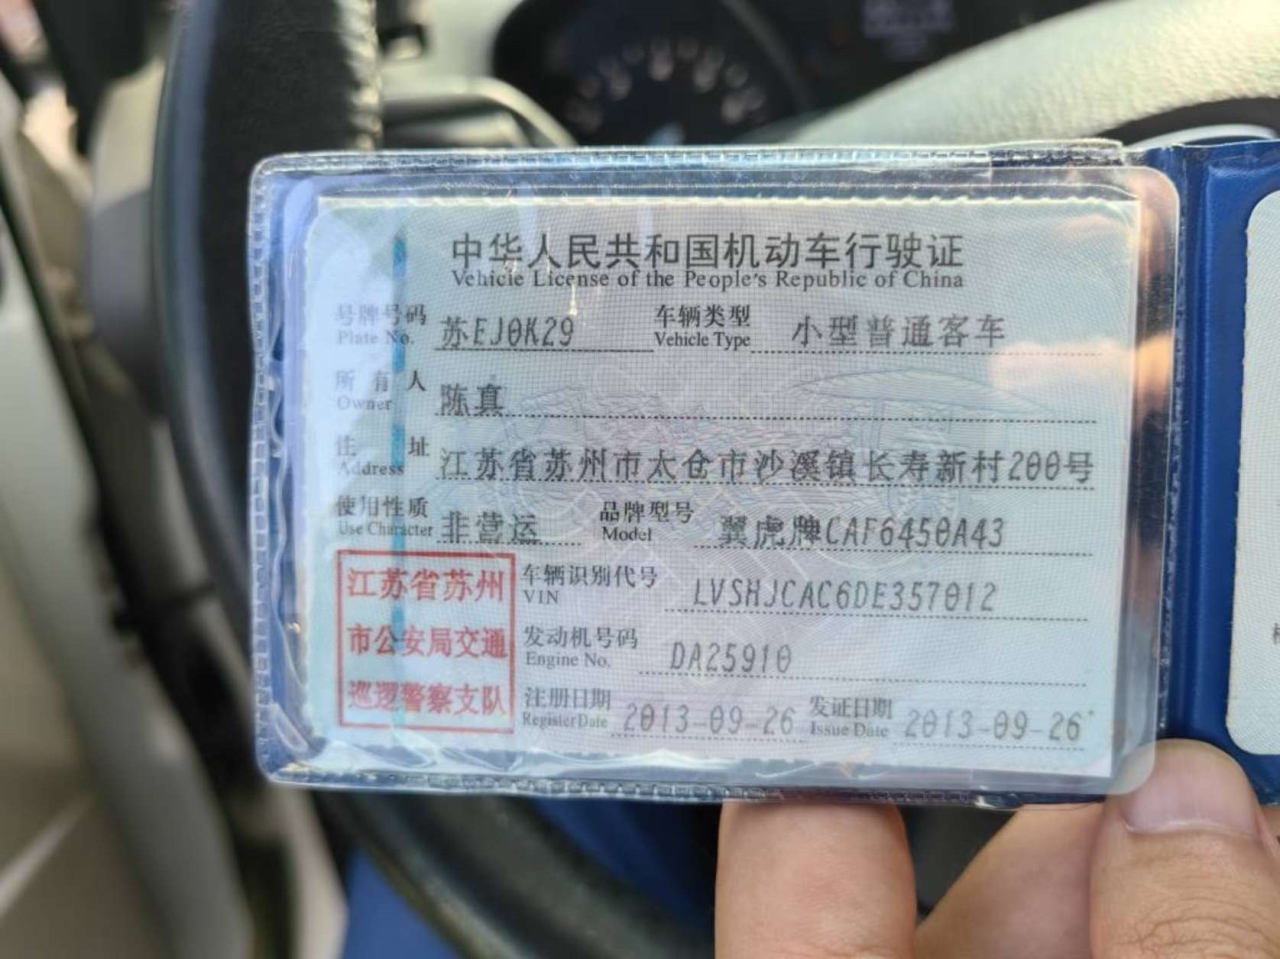 中华人民共和国机动车行驶证
Vehicle License of the People's Republic of China
号牌号码 苏EJ0K29 车辆类型 小型普通客车
Plate No. Vehicle Type
所有人 陈真
Owner
住址 江苏省苏州市太仓市沙溪镇长寿新村200号
Address
使用性质 非营运 品牌型号 翼虎牌CAF6450A43
Use Character Model
江苏省苏州
市公安局交通
巡逻警察支队
车辆识别代号 LVSHJCAC6DE357012
VIN
发动机号码 DA25910
Engine No.
注册日期 2013-09-26 发证日期 2013-09-26
Register Date Issue Date